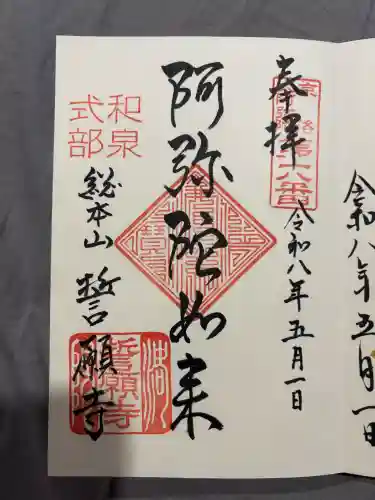 奉拝
第六番
令和八年五月一日
阿弥陀如来
和泉
式部
総本山 誓願寺
誓願寺
令和八年五月一日